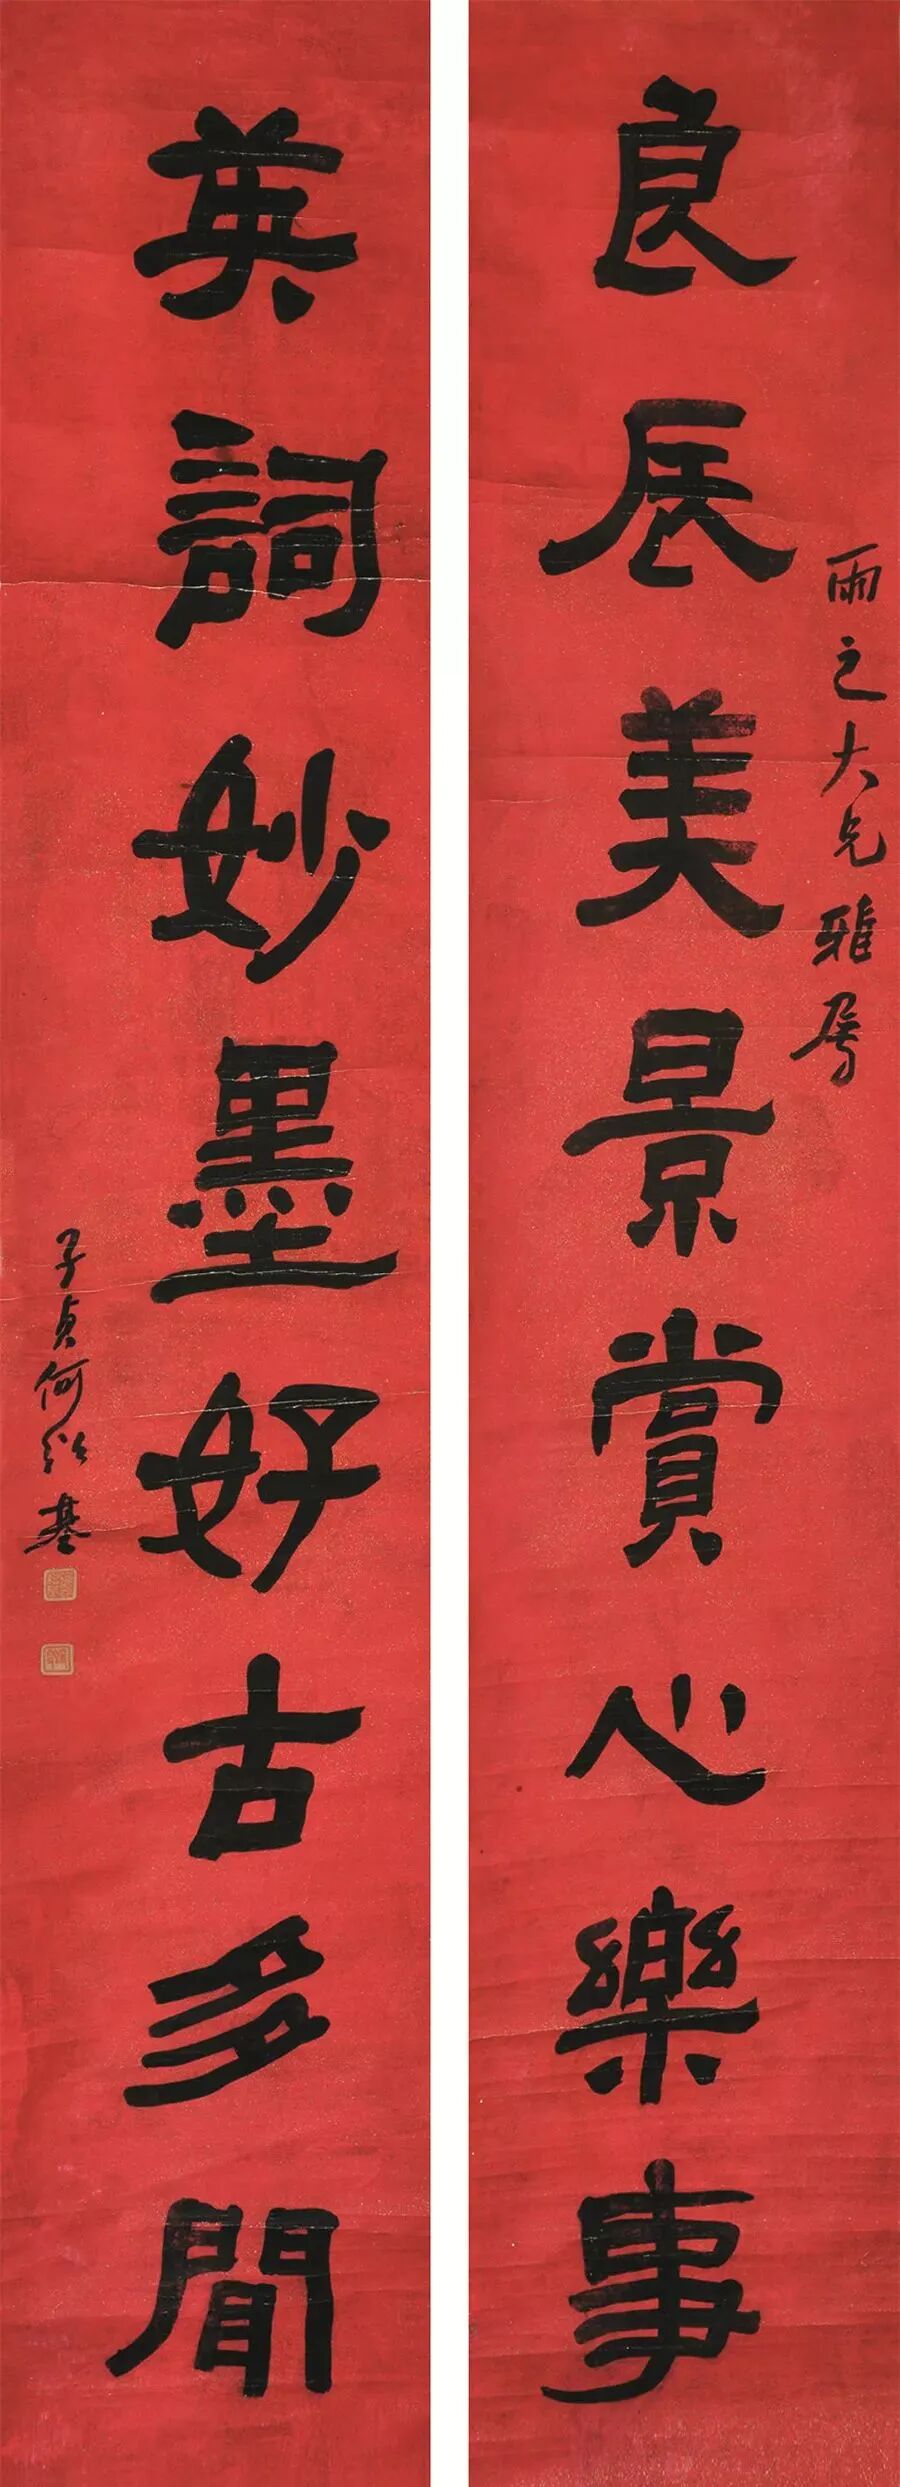 雨之大兄雅屬
良辰美景賞心樂事
英詞妙墨好古多聞
子貞何紹基